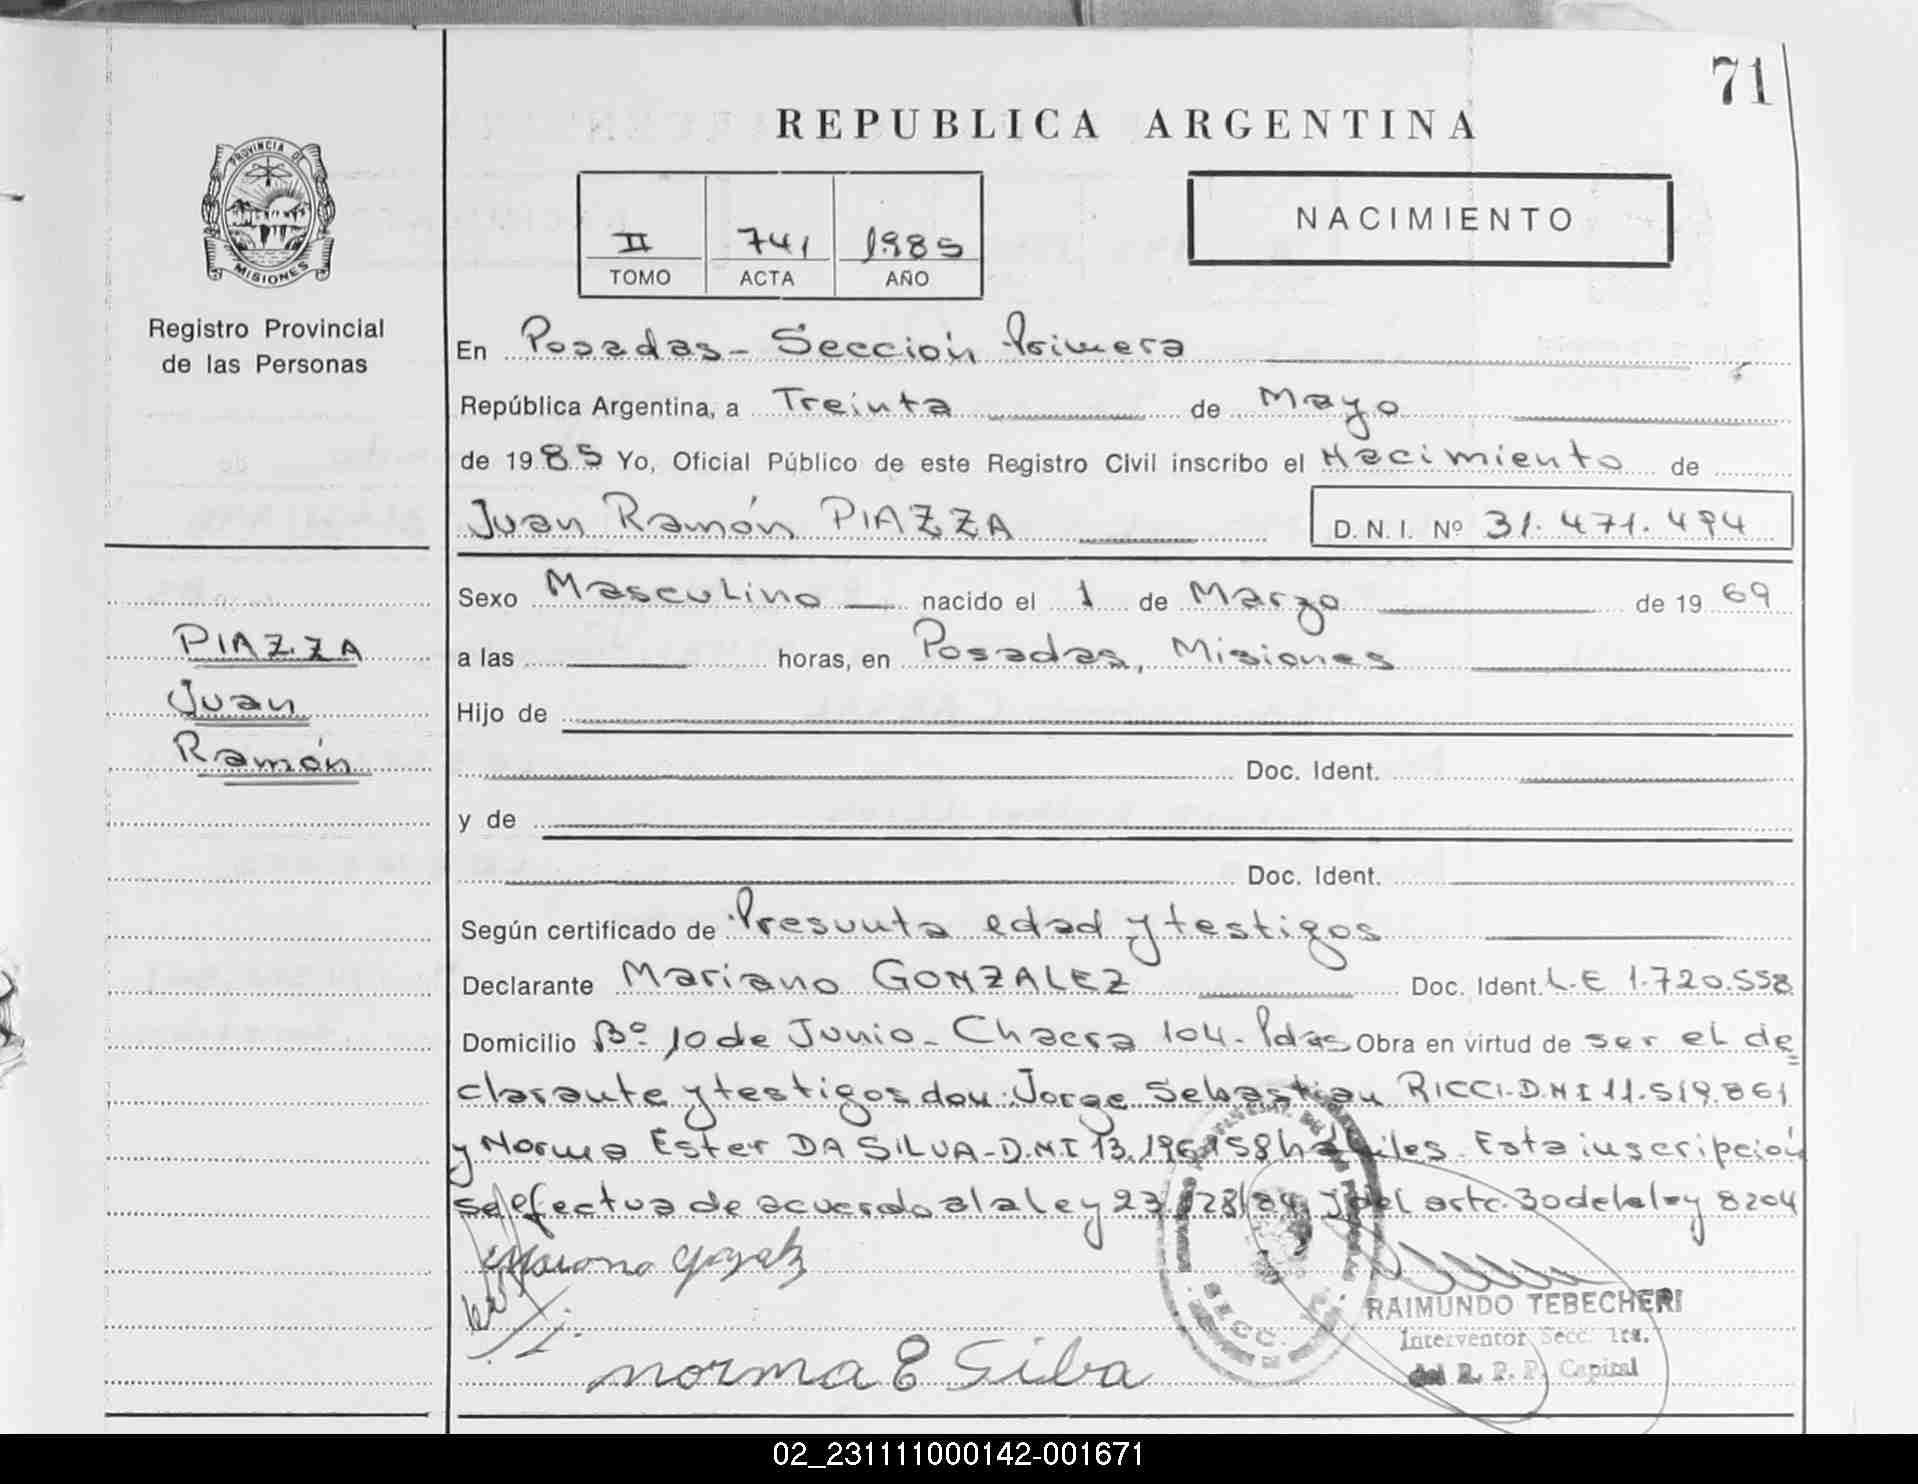 71
REPUBLICA ARGENTINA
PROVINCIA DE
MISIONES
II 741 1985
TOMO ACTA AÑO
NACIMIENTO
Registro Provincial
de las Personas
En Posadas - Sección Primera
República Argentina, a Treinta de Mayo
de 1985 Yo, Oficial Público de este Registro Civil inscribo el Nacimiento de
Juan Ramón PIAZZA D.N.I. Nº 31.471.494
Sexo Masculino nacido el 1 de Marzo de 1969
PIAZZA
Juan
Ramón
a las horas, en Posadas, Misiones
Hijo de
Doc. Ident.
y de
Doc. Ident.
Según certificado de Presunta edad y testigos
Declarante Mariano GONZALEZ Doc. Ident. L.E 1.720.558
Domicilio Bº 10 de Junio - Chacra 104 - Pdas Obra en virtud de ser el de=
clarante y testigos don: Jorge Sebastian RICCI - D.N.I 11.519.861
y Norma Ester DA SILVA - D.N.I 13.196.158 hábiles. Esta inscripción
se efectua de acuerdo a la ley 23.128/84 y del artc. 30 de la ley 8204
norma E Silba
SECC.
RAIMUNDO TEBECHERI
Interventor Secc. 1ra.
del R. P. P. Capital
02_231111000142-001671